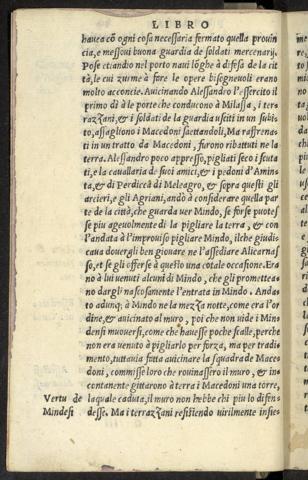 LIBRO
hauea cō ogni cosa necessaria fermato questa prouin
cia, e messoui buona guardia di soldati mercenarij.
Pose etiandio nel porto naui lōghe à difesa de la cit
tà, le cui zurme à fare le opere bisegneuoli erano
molto acconcie. Auicinando Alessandro l'essercito il
primo dì à le porte che conducono à Milassa, i ter
razzani, & i soldati de la guardia usciti in un subi
to, assagliono i Macedoni saettandoli, Ma raffrena
ti in un tratto da Macedoni, furono ributtati ne la
terra. Alessandro poco appresso, pigliati seco i scuta
ti, e la cauallaria de suoi amici, & i pedoni d'Amin
ta, & di Perdicca di Meleagro, & sopra questi gli
arcieri, e gli Agriani, andò à considerare quella par
te de la città, che guarda uer Mindo, se forse potes
se piu ageuolmente di la pigliare la terra, & con
l'andata à l'improuiso pigliare Mindo, ilche giudi
caua douergli ben giouare ne l'assediare Alicarnas
so, et se gli offerse à questo una cotale occasione. Era
no à lui uenuti alcuni di Mindo, che gli promettea
no dargli nascosamente l'entrata in Mindo. Anda
to adunq; à Mindo ne la mezza notte, come era l'or
dine, & auicinato al muro, poi che non uide i Min
densi muouersi, come che hauesse poche scale, perche
non era uenuto à pigliarlo per forza, ma per tradi
mento, tuttauia fatta auicinare la squadra de Mace
doni, commisse loro che rouinassero il muro, & in
contanente gittarono à terra i Macedoni una torre,
Vertu de laquale caduta, il muro non hebbe chi piu lo difen
Mindesi desse. Ma i terrazzani resistendo uirilmente insie-